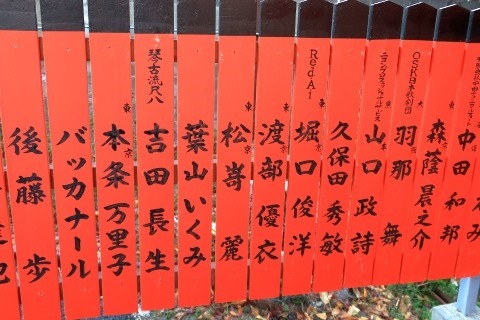 中田和邦
東京
森蔭晨之介
大
OSK日本歌劇団
羽那舞
山口政詩
久保田秀敏
Red Ai
堀口俊洋
東京
渡部優衣
東京
松嵜麗
葉山いくみ
琴古流尺八
吉田長生
東京
本条万里子
バッカナール
後藤歩